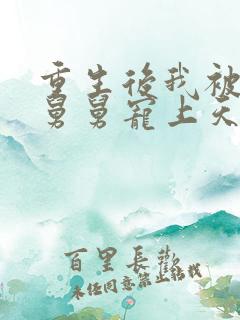 重生後我被
舅舅寵上天
百里長歡
未经同意禁止结找